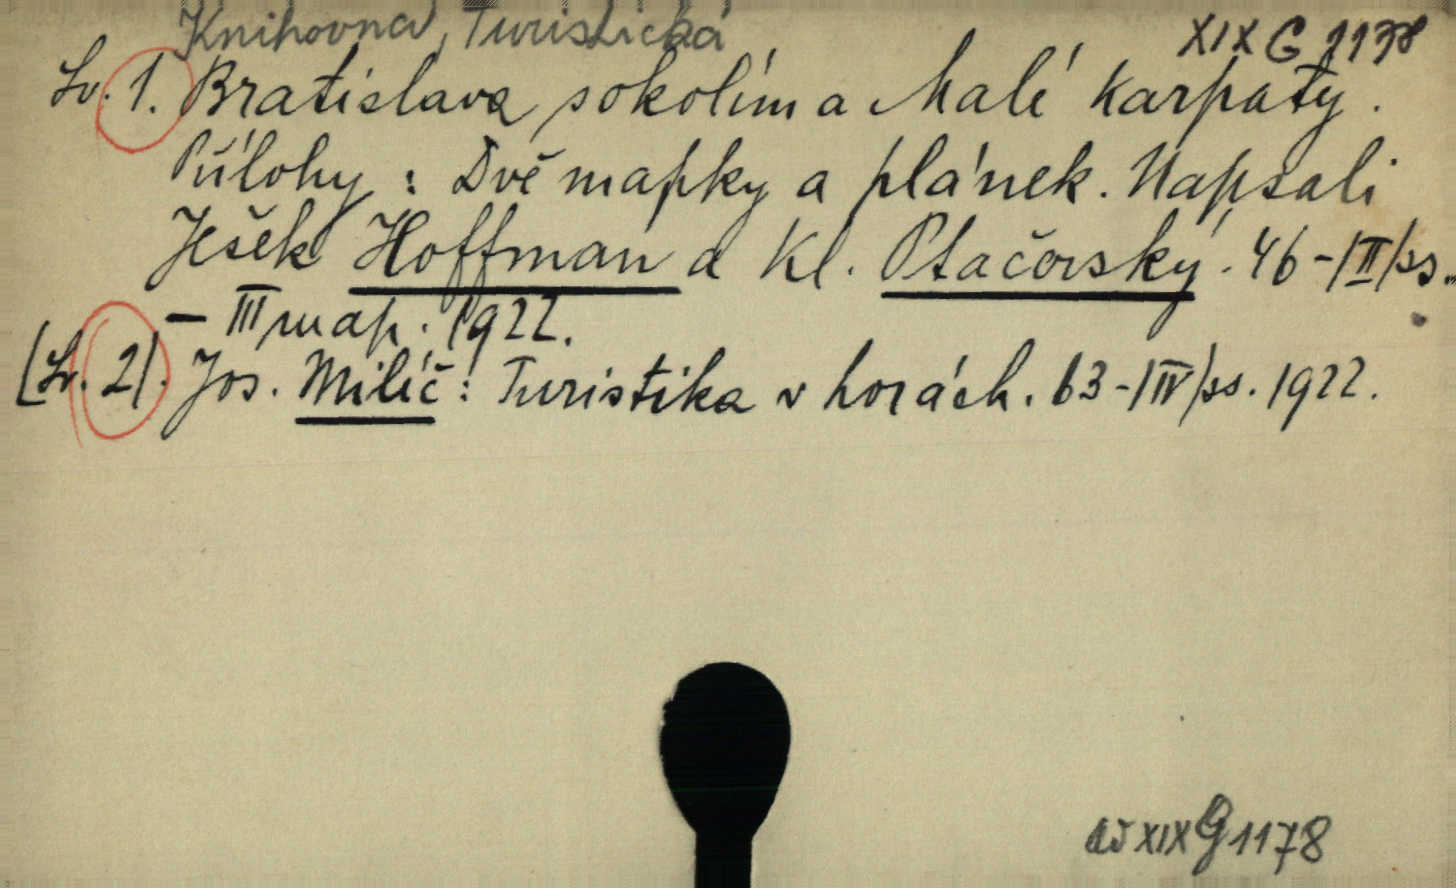 Knihovna, Turistická
XIX G 1178
Sv. 1. Bratislava, sokolím a Malé Karpaty.
Přílohy: Dvě mapky a plánek. Napsali
Ješek Hoffman a Kl. Ptačovský. 46-/II/ss.
- III map. 1922.
[Sv. 2]. Jos. Milíč: Turistika v horách. 63-/IV/ss. 1922.
ad XIX G 1178